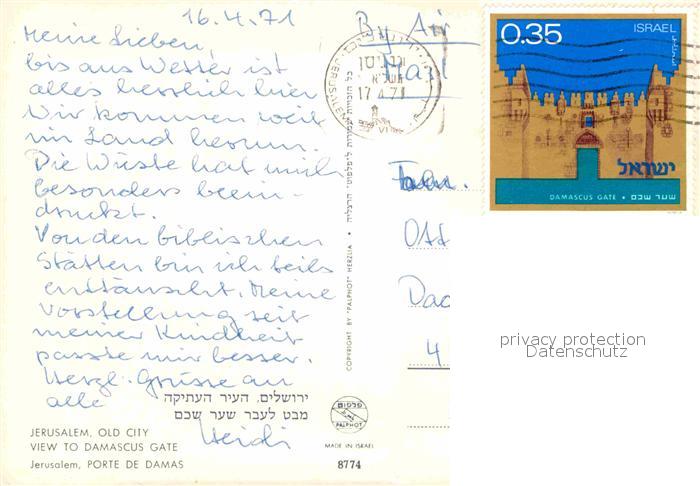 16.4.71
Meine Lieben,
bis aus Wetter ist
alles herrlich hier
Wir kommen weit
im Land herum.
Die Wüste hat mich
besonders beein-
druckt.
Von den biblischen
Stätten bin ich teils
enttäuscht. Meine
Vorstellung seit
meiner Kindheit
passte mir besser.
Herzl. Grüsse an
alle
Heidi
ירושלים, העיר העתיקה
מבט לעבר שער שכם
JERUSALEM, OLD CITY
VIEW TO DAMASCUS GATE
Jerusalem, PORTE DE DAMAS
COPYRIGHT BY "PALPHOT" HERZLIA
כל הזכויות שמורות ל"פלפוט" הרצליה
פלפוט
PALPHOT
MADE IN ISRAEL
8774
By Air
Mail
JERUSALEM
17.4.71
0.35
ISRAEL
ישראל
DAMASCUS GATE • שער שכם
Fam.
Ott
4
privacy protection
Datenschutz